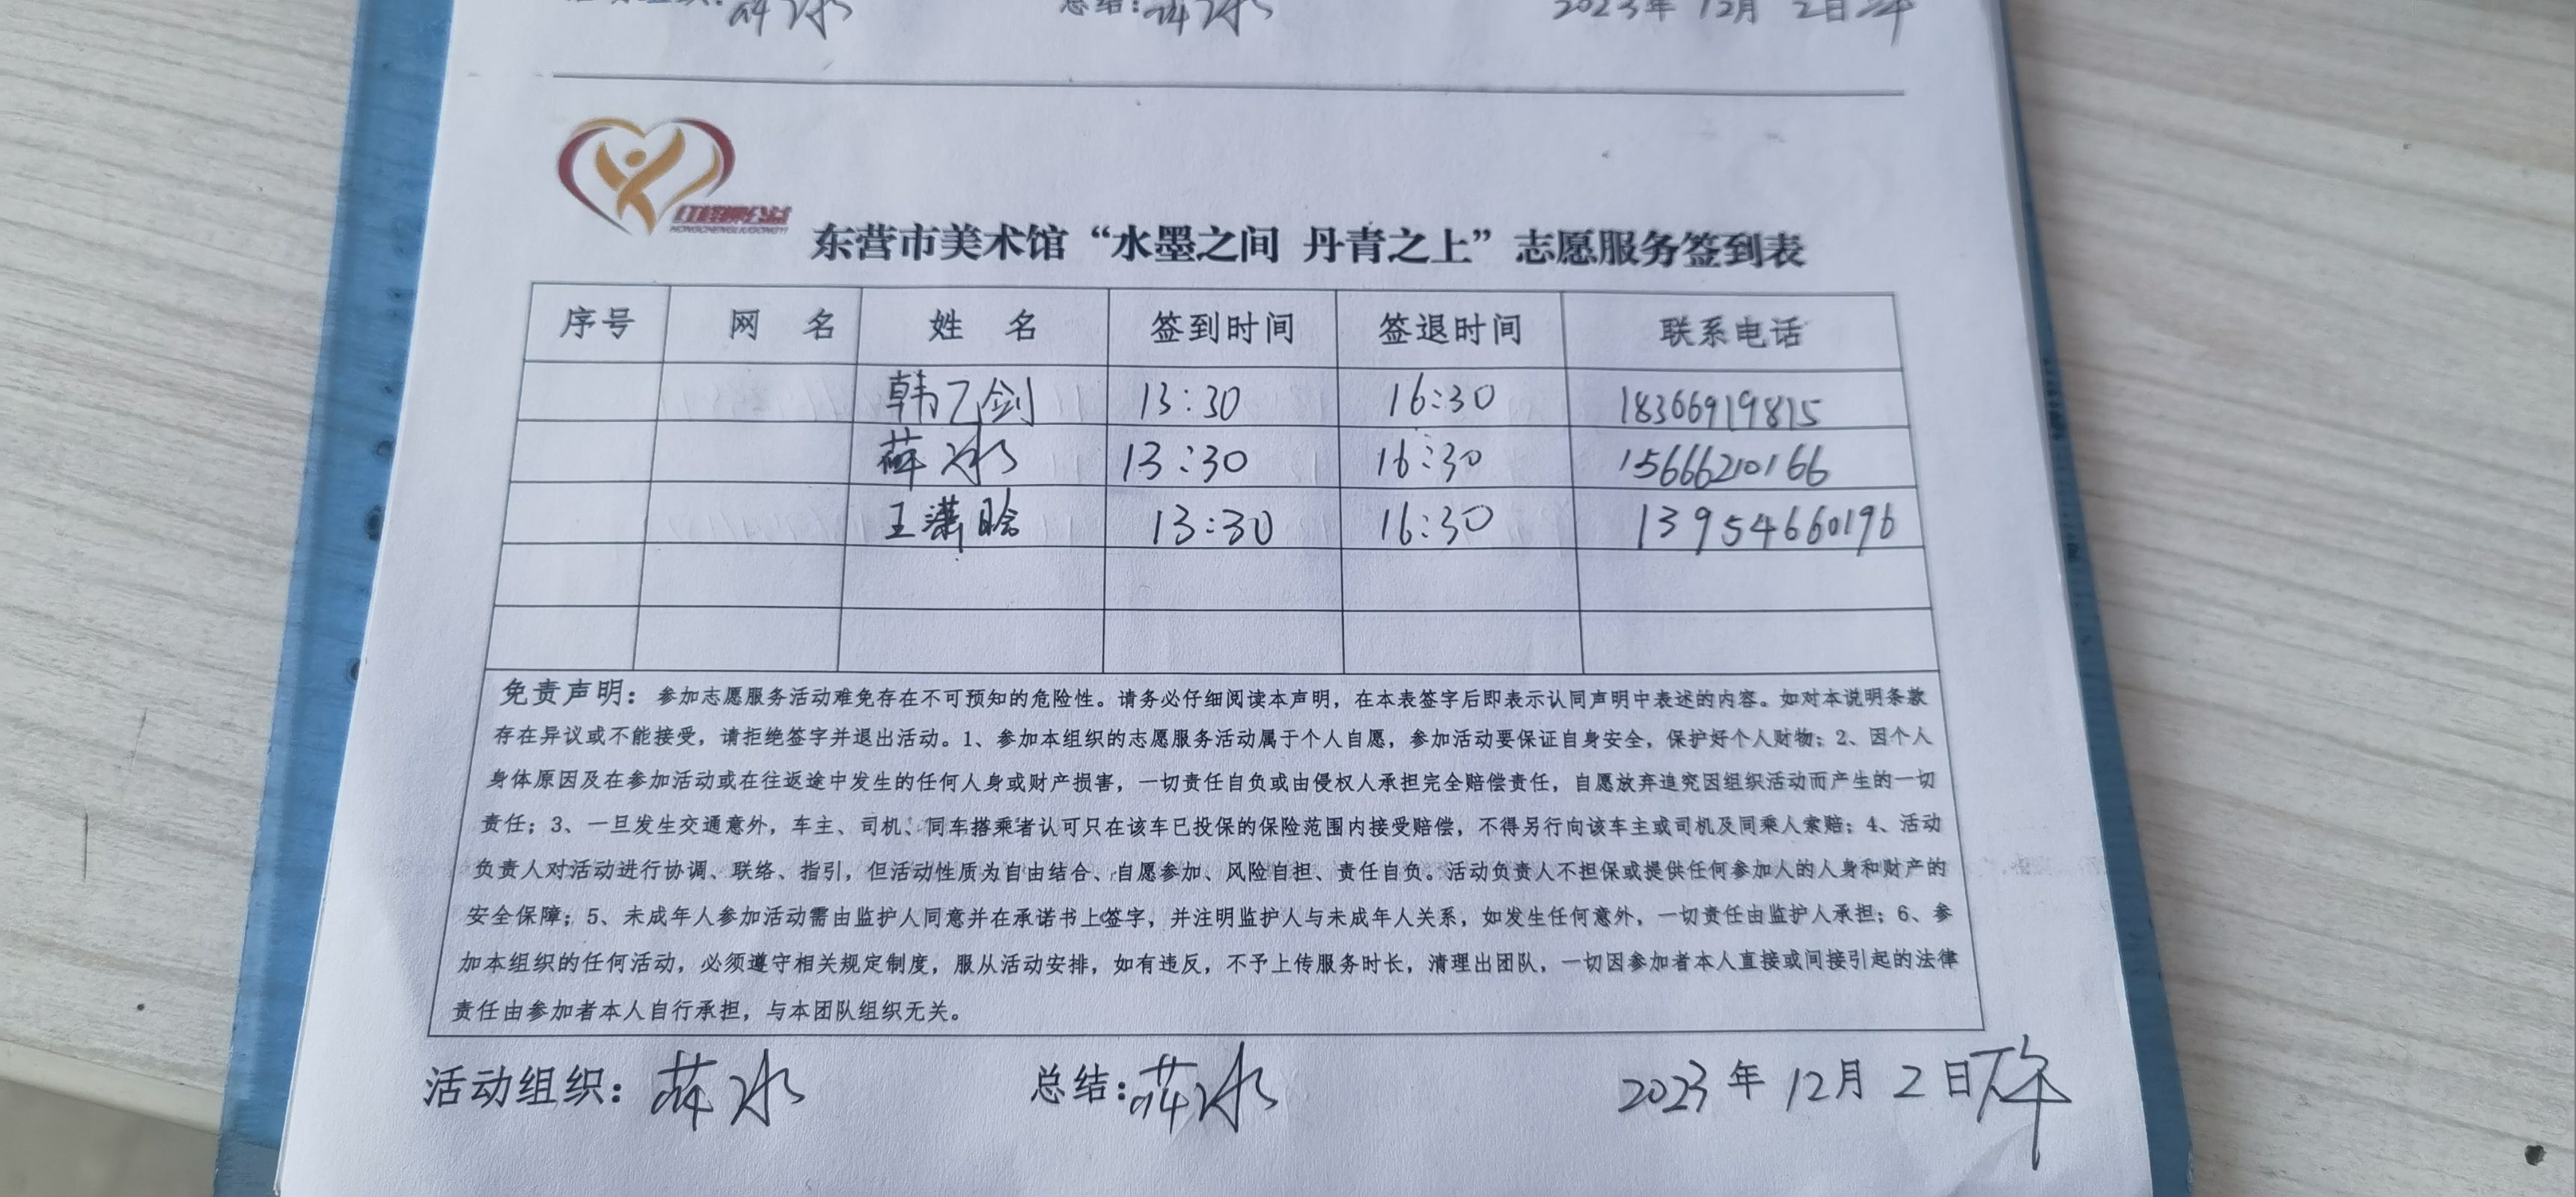 总结:薛冰
2023年 12月 2日上午
东营市美术馆“水墨之间 丹青之上”志愿服务签到表
序号 网 名 姓 名 签到时间 签退时间 联系电话
韩乙剑 13:30 16:30 18366919815
薛冰 13:30 16:30 15666210166
王潇晗 13:30 16:30 13954660196
免责声明：参加志愿服务活动难免存在不可预知的危险性。请务必仔细阅读本声明，在本表签字后即表示认同声明中表述的内容。如对本说明条款
存在异议或不能接受，请拒绝签字并退出活动。1、参加本组织的志愿服务活动属于个人自愿，参加活动要保证自身安全，保护好个人财物；2、因个人
身体原因及在参加活动或在往返途中发生的任何人身或财产损害，一切责任自负或由侵权人承担完全赔偿责任，自愿放弃追究因组织活动而产生的一切
责任；3、一旦发生交通意外，车主、司机、同车搭乘者认可只在该车已投保的保险范围内接受赔偿，不得另行向该车主或司机及同乘人索赔；4、活动
负责人对活动进行协调、联络、指引，但活动性质为自由结合、自愿参加、风险自担、责任自负。活动负责人不担保或提供任何参加人的人身和财产的
安全保障；5、未成年人参加活动需由监护人同意并在承诺书上签字，并注明监护人与未成年人关系，如发生任何意外，一切责任由监护人承担；6、参
加本组织的任何活动，必须遵守相关规定制度，服从活动安排，如有违反，不予上传服务时长，清理出团队，一切因参加者本人直接或间接引起的法律
责任由参加者本人自行承担，与本团队组织无关。
活动组织：薛冰 总结:薛冰 2023年 12月 2日下午